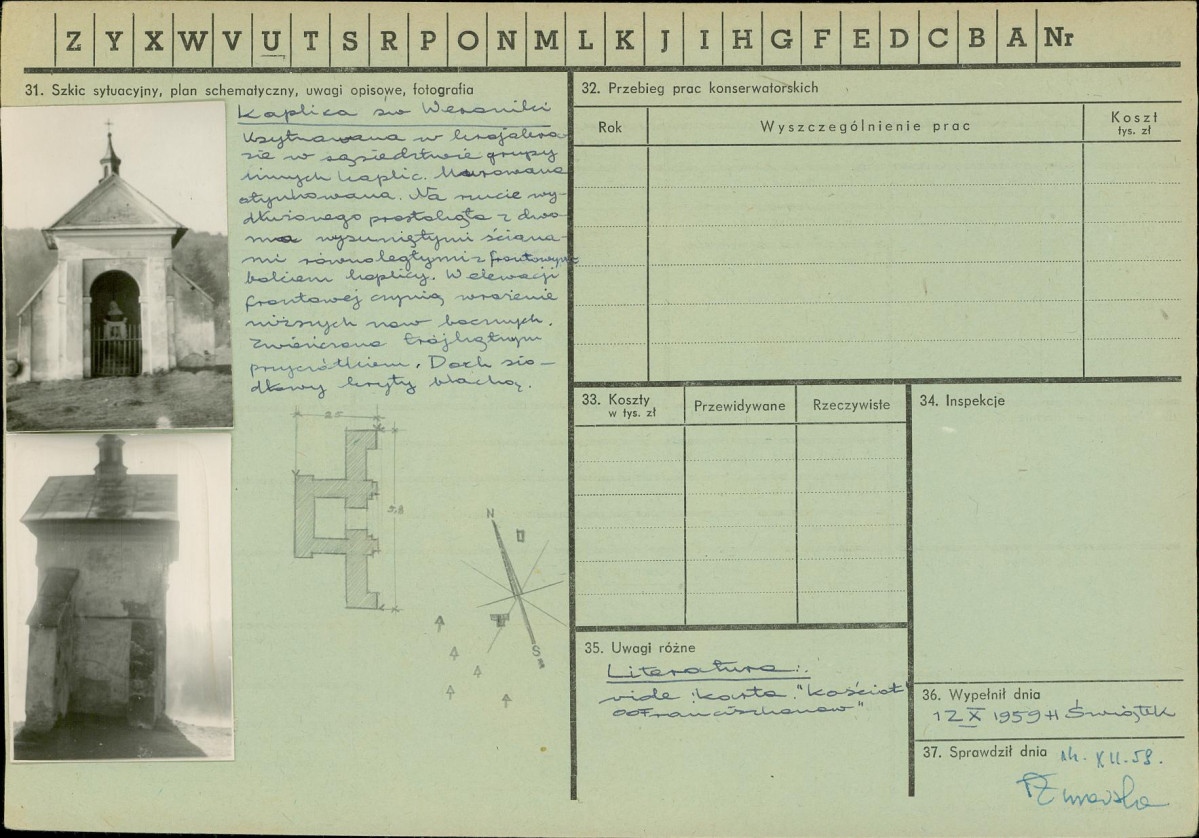 Z Y X W V U T S R P O N M L K J I H G F E D C B A Nr
31. Szkic sytuacyjny, plan schematyczny, uwagi opisowe, fotografia
Kaplica św Weroniki
Usytuowana w krajobra-
zie w sąsiedztwie grupy
innych kaplic. Murowana
otynkowana. Na rzucie wy-
dłużonego prostokąta z dwo-
ma wysuniętymi ściana-
mi równoległymi z frontowym
bokiem kaplicy. W elewacji
frontowej czynią wrażenie
niższych naw bocznych.
Zwieńczona trójkątnym
przyczółkiem. Dach sio-
dłowy kryty blachą.
25
5.8
N
S
32. Przebieg prac konserwatorskich
Rok
Wyszczególnienie prac
Koszt
tys. zł
33. Koszty
w tys. zł
Przewidywane
Rzeczywiste
34. Inspekcje
35. Uwagi różne
Literatura:
vide: karta "Kościół
OO Franciszkanów"
36. Wypełnił dnia
12 X 1959 H Świątek
37. Sprawdził dnia
XII. 59.